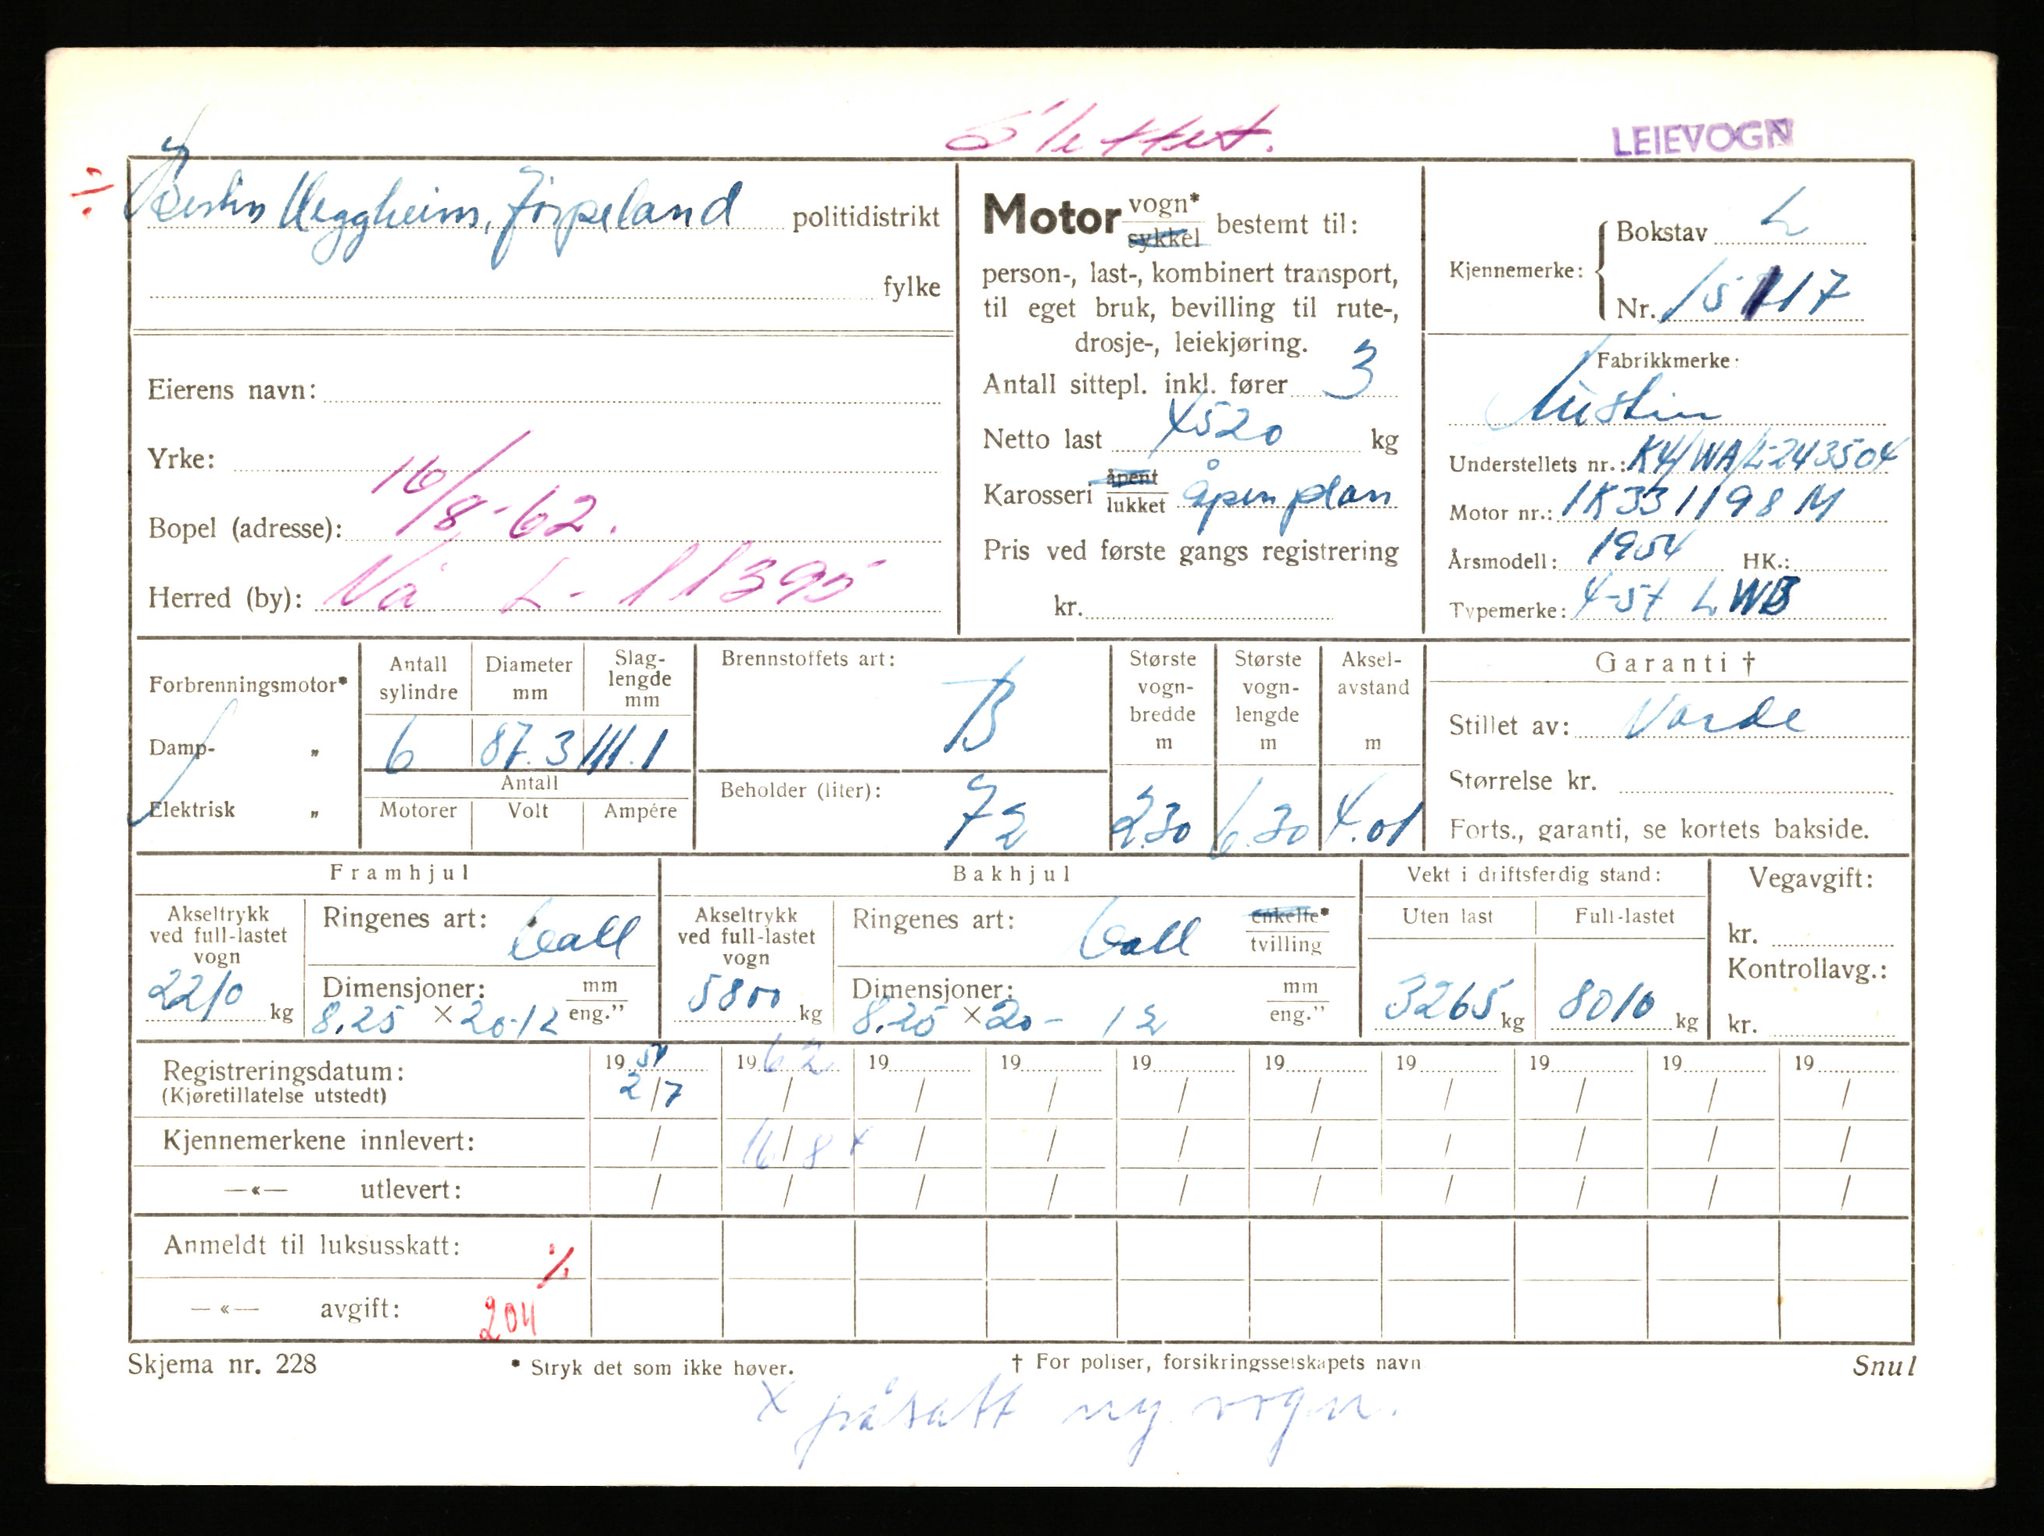 Slettet.
LEIEVOGN
Heggheim, Jørpeland politidistrikt
fylke
Eierens navn:
Yrke:
16/8-62.
Bopel (adresse):
Herred (by): Nå L-11395
Motor vogn* sykkel bestemt til:
person-, last-, kombinert transport,
til eget bruk, bevilling til rute-,
drosje-, leiekjøring.
Antall sittepl. inkl. fører 3
Netto last 4520 kg
Karosseri åpent lukket åpen plan
Pris ved første gangs registrering
kr.
Kjennemerke: Bokstav L
Nr. 15117
Fabrikkmerke:
Austin
Understellets nr.: K4/WA/L-243504
Motor nr.: 1K331198M
Årsmodell: 1954 HK.:
Typemerke: 4-5t LWB
Forbrenningsmotor*
Damp- „
Elektrisk „
Antall sylindre 6
Diameter mm 87.3
Slag-lengde mm 111.1
Antall
Motorer Volt Ampére
Brennstoffets art: B
Beholder (liter): 72
Største vogn-bredde m 2.30
Største vogn-lengde m 6.30
Aksel-avstand m 4.01
Garanti †
Stillet av: Varde
Størrelse kr.
Forts., garanti, se kortets bakside.
Framhjul
Akseltrykk ved full-lastet vogn 2210 kg
Ringenes art:
Dimensjoner: 8.25 × 20-12 mm eng.”
Bakhjul
Akseltrykk ved full-lastet vogn 5800 kg
Ringenes art: enkelte* tvilling
Dimensjoner: 8.25 × 20- 12 mm eng.”
Vekt i driftsferdig stand:
Uten last 3265 kg
Full-lastet 8010 kg
Vegavgift:
kr.
Kontrollavg.:
kr.
Registreringsdatum: 1954 1962 19 19 19 19 19 19 19 19
(Kjøretillatelse utstedt) 2/7 / / / / / / / / /
Kjennemerkene innlevert: / 16/8 x / / / / / / / /
—«— utlevert: / / / / / / / / / /
Anmeldt til luksusskatt: %
—«— avgift: 204
Skjema nr. 228
* Stryk det som ikke høver.
† For poliser, forsikringsselskapets navn
Snul
x påsatt ny vogn.